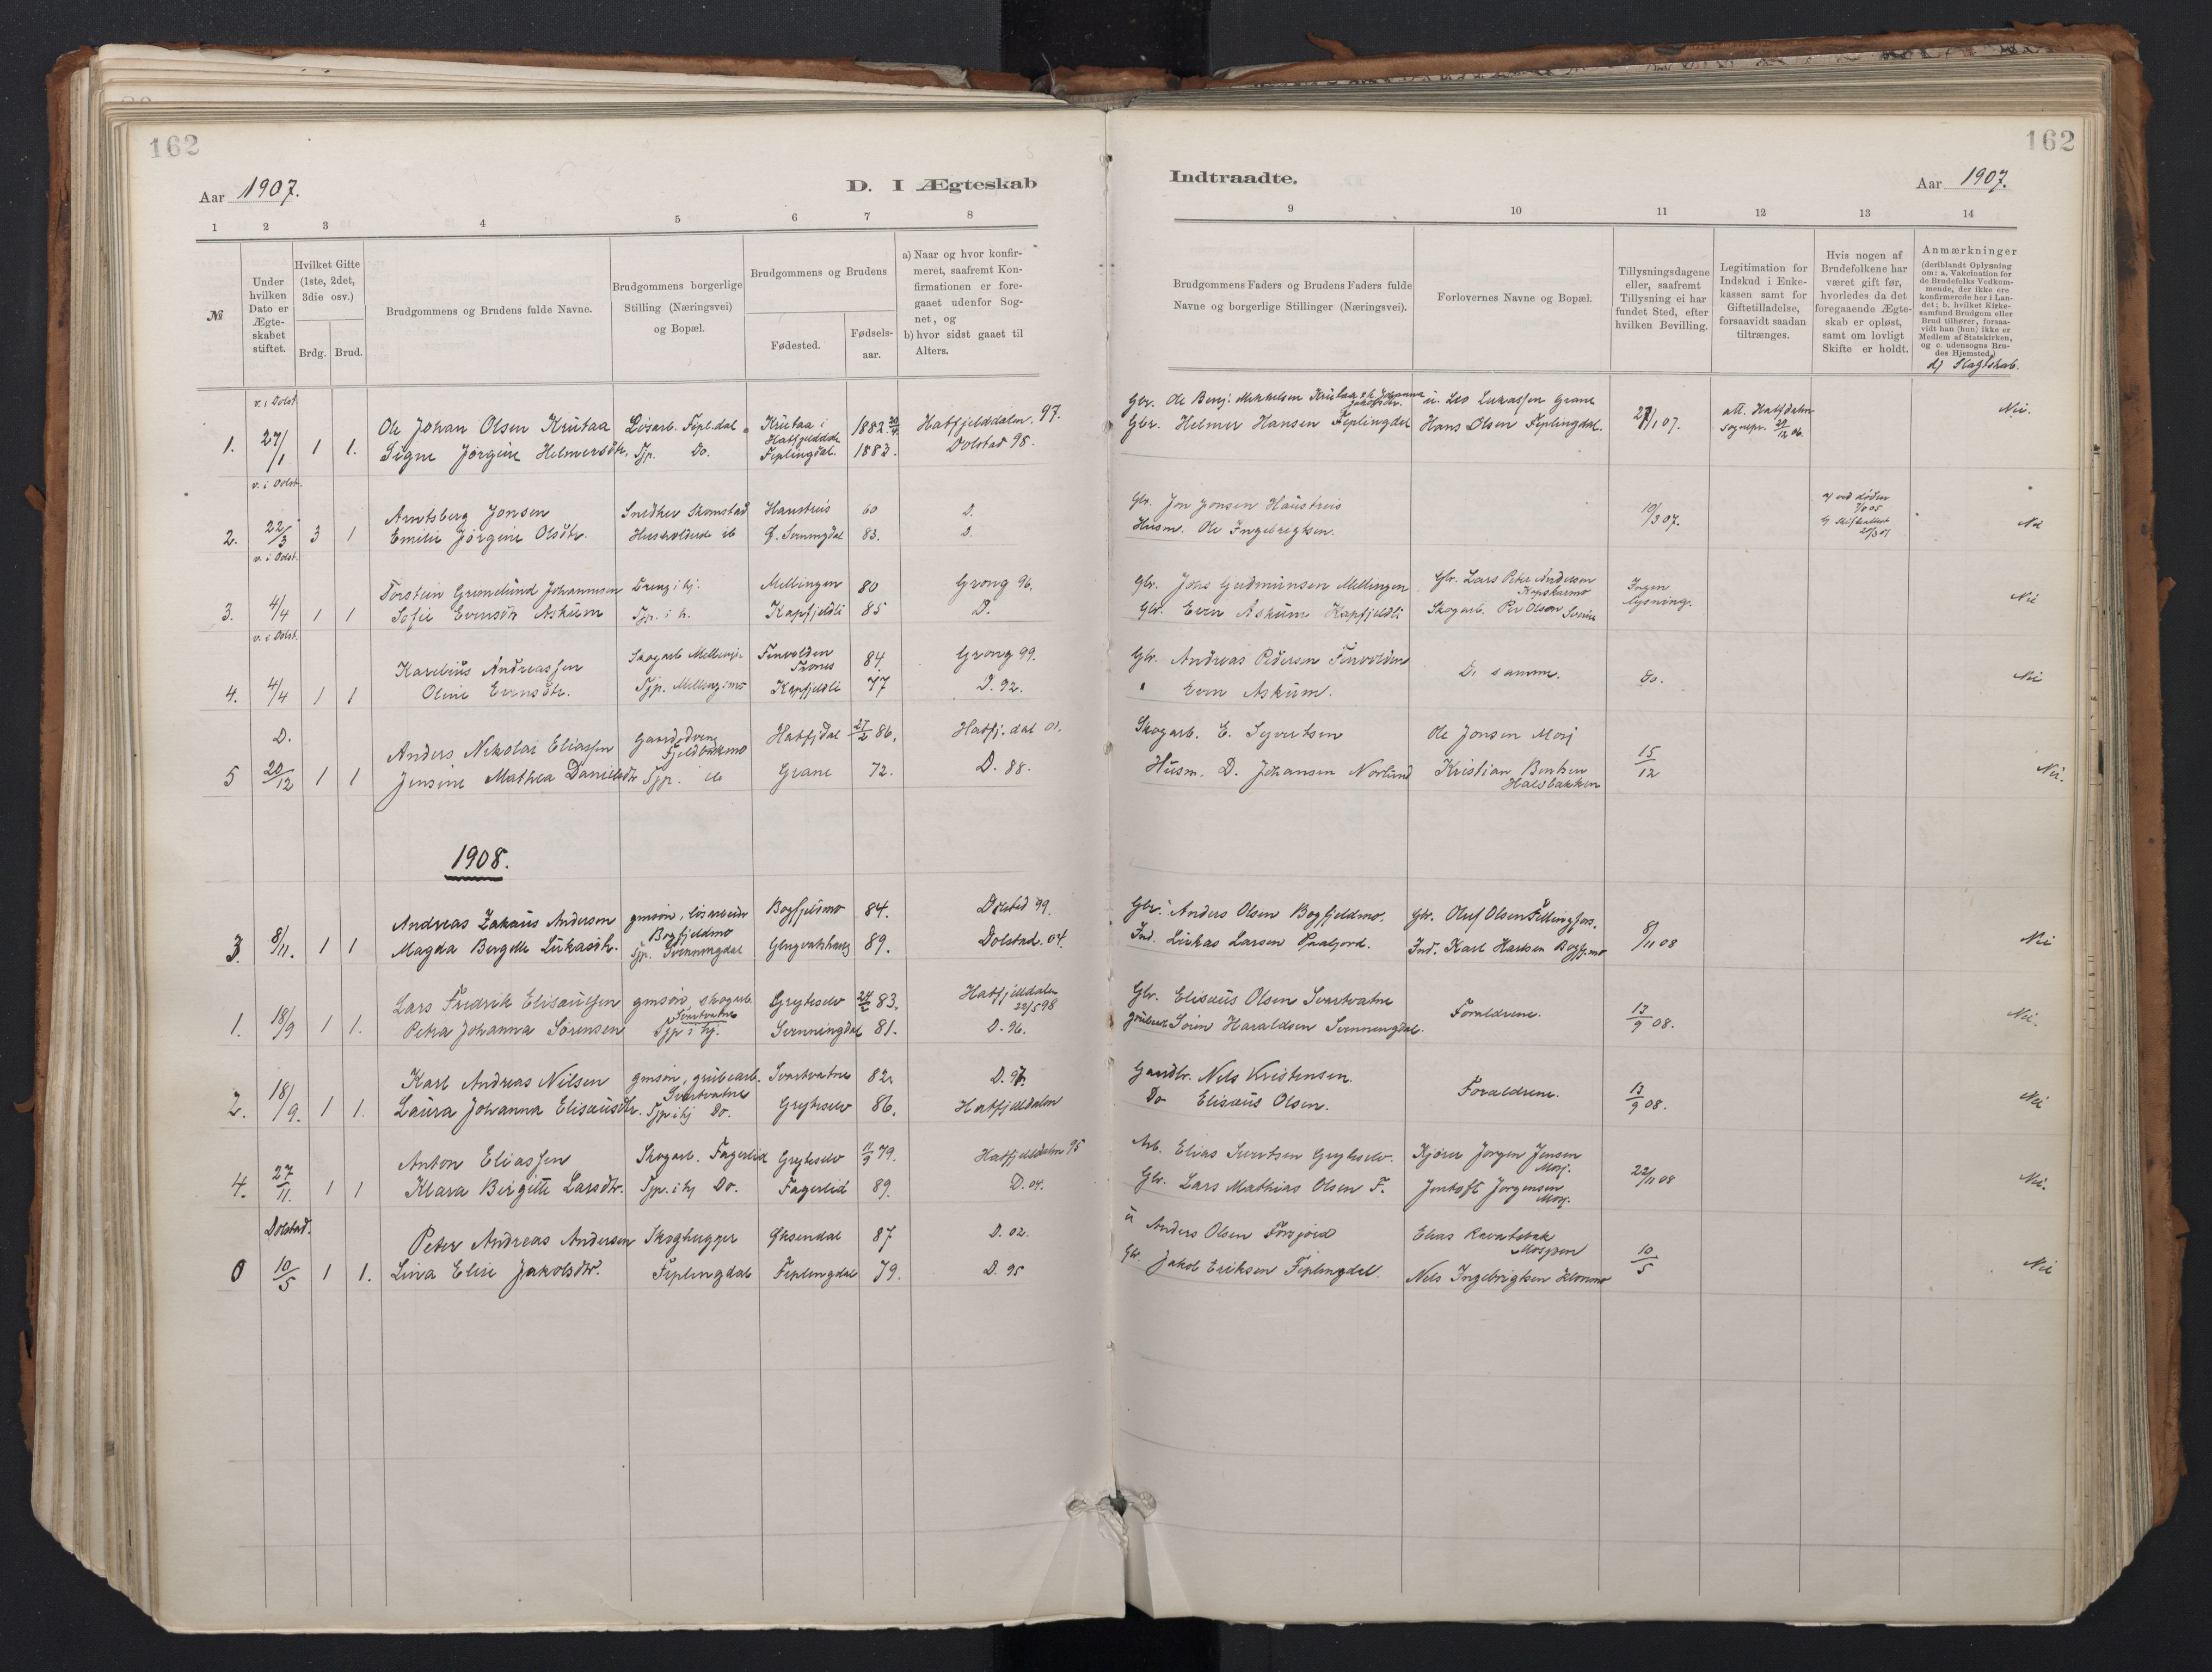 162
162
Aar 1907.
D. I Ægteskab
Indtraadte.
Aar 1907.
1 2 3 4 5 6 7 8
9 10 11 12 13 14
№
Under hvilken Dato er Ægteskabet stiftet.
Hvilket Gifte (1ste, 2det, 3die osv.)
Brdg. Brud.
Brudgommens og Brudens fulde Navne.
Brudgommens borgerlige Stilling (Næringsvei) og Bopæl.
Brudgommens og Brudens
Fødested.
Fødsels-aar.
a) Naar og hvor konfirmeret, saafremt Konfirmationen er foregaaet udenfor Sognet, og
b) hvor sidst gaaet til Alters.
Brudgommens Faders og Brudens Faders fulde Navne og borgerlige Stillinger (Næringsvei).
Forlovernes Navne og Bopæl.
Tillysningsdagene eller, saafremt Tillysning ei har fundet Sted, efter hvilken Bevilling.
Legitimation for Indskud i Enkekassen samt for Giftetilladelse, forsaavidt saadan tiltrænges.
Hvis nogen af Brudefolkene har været gift før, hvorledes da det foregaaende Ægteskab er opløst, samt om lovligt Skifte er holdt.
Anmærkninger
(deriblandt Oplysning om: a. Vakcination for de Brudefolks Vedkommende, der ikke ere konfirmerede her i Landet; b. hvilket Kirkesamfund Brudgom eller Brud tilhører, forsaavidt han (hun) ikke er Medlem af Statskirken, og c. udensogns Brudes Hjemsted.)
d) Slagtskab.
v. i Dolst.
1. 27/1 1 1.
Ole Johan Olsen Krutaa Løsarb. Fepl.dal Krutaa i Hatfjelddal 1882 Hatfjelddalen 97.
Signe Jørgine Helmersdtr. Tjp. Do. Feplingdal 1883. Dolstad 98.
Gbr. Ole Benj. Mikkelsen Krutaa
Leo Lukassen Grane
Gbr. Helmer Hansen Feplingdal Hans Olsen Feplingdal. 27/1 07. att. Hatfjdalen Sognepr. 29/12 06. Nei.
v. i Dolst.
2. 22/3 3 1
Arntsberg Jonsen Snedker Skomstad Haustreis 60 D.
Emilie Jørgine Olsdtr. Husholderske ib 83. D.
Gbr. Jon Jonsen Haustreis
Husm. Ole Ingebrigtsen. 10/3 07. a) ved døden
v. i Dolst.
3. 4/4 1 1
Torstein Grønelund Johannesen Dreng i hj. Mellingen 80 Grong 96.
Sofie Evensdtr Askum Tjp. i h. Kapfjeldli 85 D.
Gbr. Johs Gudmunsen Mellingen Gbr. Lars Peter Andersen Kapskarmo
Gbr. Even Askum Kapfjeldli Skogarb. Per Olsen Ingen lysning. Nei
v. i Dolst.
4. 4/4 1 1
Karelius Andreassen Skogarb 84. Grong 99.
Oline Evensdtr. Tjp. Mellingsmo Kapfjeldli 77 D. 92.
Gbr. Andreas Pedersen
" Even Askum. De samme. do. Nei
D.
5 20/12 1 1
Anders Nikolai Eliassen Gaardsdreng Fjeldbækmo Hatfjdal 27/2 86. Hatfj.dal 01.
Jensine Mathea Danielsdtr Tjp. ib Grane 72. D. 88.
Skogarb. E. Syvertsen Ole Jonsen Mosj
Husm. D. Johansen Norlund Kristian Bentsen Halsbakken 15/12 Nei.
1908.
3. 8/11. 1 1
Andreas Zakaus Andersen gmsøn, løsarbeider Bogfjeldmo Bogfjeldmo 84. Dolstad 99.
Magda Bergette Lukasdtr. Tjp. Svenningdal 89. Dolstad. 04.
Gbr. Anders Olsen Bogfjeldmo. Gbr. Oluf Olsen Fellingfors.
Ind. Lukas Larsen Ind. Karl Karlsen Bogfj.mo 8/11 08 Nei
1. 18/9 1 1.
Lars Fredrik Elisæusen gmsøn, skogarb. Svartvatne Gryteselv 24/2 83. Hatfjelldalen 22/5 98
Petra Johanna Sørensen Tjp i hj. Svenningdal 81. D. 96.
Gbr. Elisæus Olsen Svartvatne
Sørin Haraldsen Svenningdal. Forældrene. 13/9 08. Nei.
2. 18/9. 1 1.
Karl Andreas Nilsen gmsøn, grubearb. Svartvatne Svartvatne 82. D. 97.
Laura Johanna Elisæusdtr. Tjp i hj Do. Gryteselv 86. Hatfjelldalen
Gaardbr. Nils Kristensen.
Do Elisæus Olsen. Forældrene. 13/9 08. Nei
4. 27/11. 1 1
Anton Eliassen Skogarb. Fagerlid Gryteselv 11/9 79. Hatfjelldalen 95
Klara Birgitte Larsdtr. Tjp. i hj Do. Fagerlid 89. D. 04.
Arb. Elias Sivertsen Gryteselv. Kjører Jørgen Jensen Mosj.
Gbr. Lars Mathias Olsen F. Jentoft Jørgensen Mosj. 22/11 08 Nei.
Dolstad.
0 10/5 1 1.
Peter Andreas Andersen Skoghugger Eksendal 87 D. 02.
Lina Elise Jakobsdtr. Feplingdal Feplingdal 79. D. 95
Anders Olsen Forsjord Elias Kvartebak Mosjøen
Gbr. Jakob Eriksen Feplingdal. Nils Ingebrigtsen 10/5 Nei